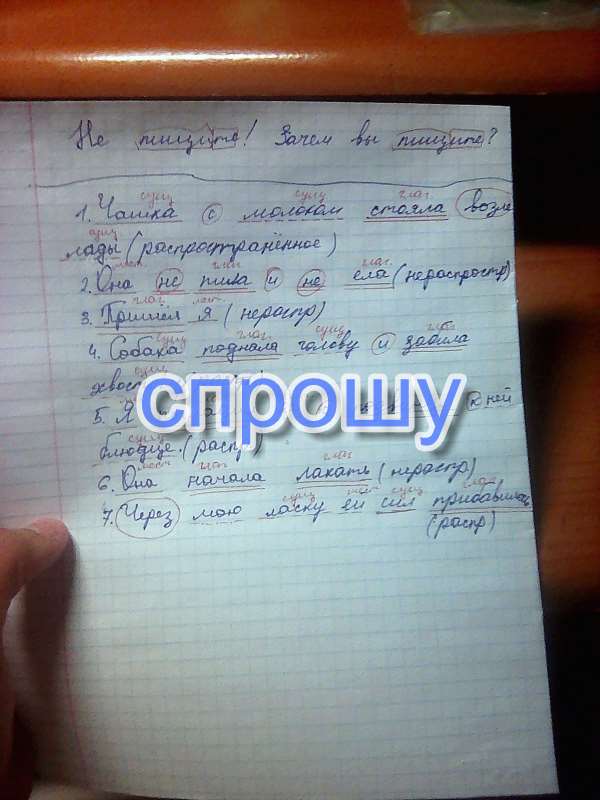 Не пищите! Зачем вы пищите?
сущ сущ глаг
1. Чашка с молоком стояла возле
сущ
лады (распространённое)
мест глаг глаг
2. Она не пила и не ела (нераспростр)
глаг мест
3. Пришёл я (нераспр)
сущ глаг сущ глаг
4. Собака подняла голову и забила
сущ
хвост
спрошу
5. Я к ней
сущ
блюдце. (распр)
мест глаг глаг
6. Она начала лакать (нераспр)
сущ мест сущ глаг
7. Через мою ласку ей сил прибавилось
(распр)